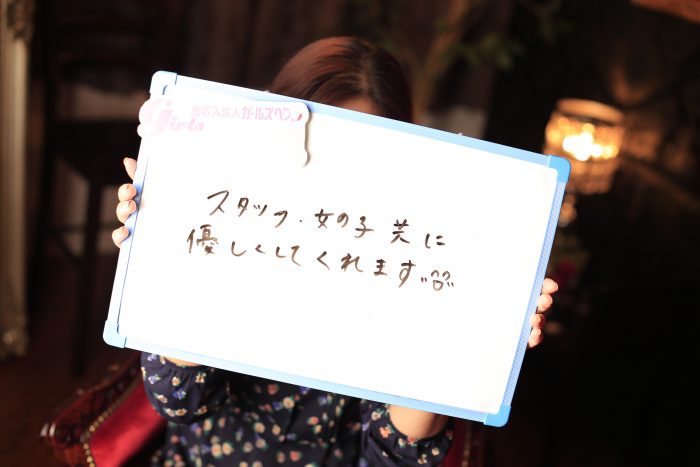 高収入求人ガールズヘブン
Girls
スタッフ・女の子 共に
優しくしてくれます